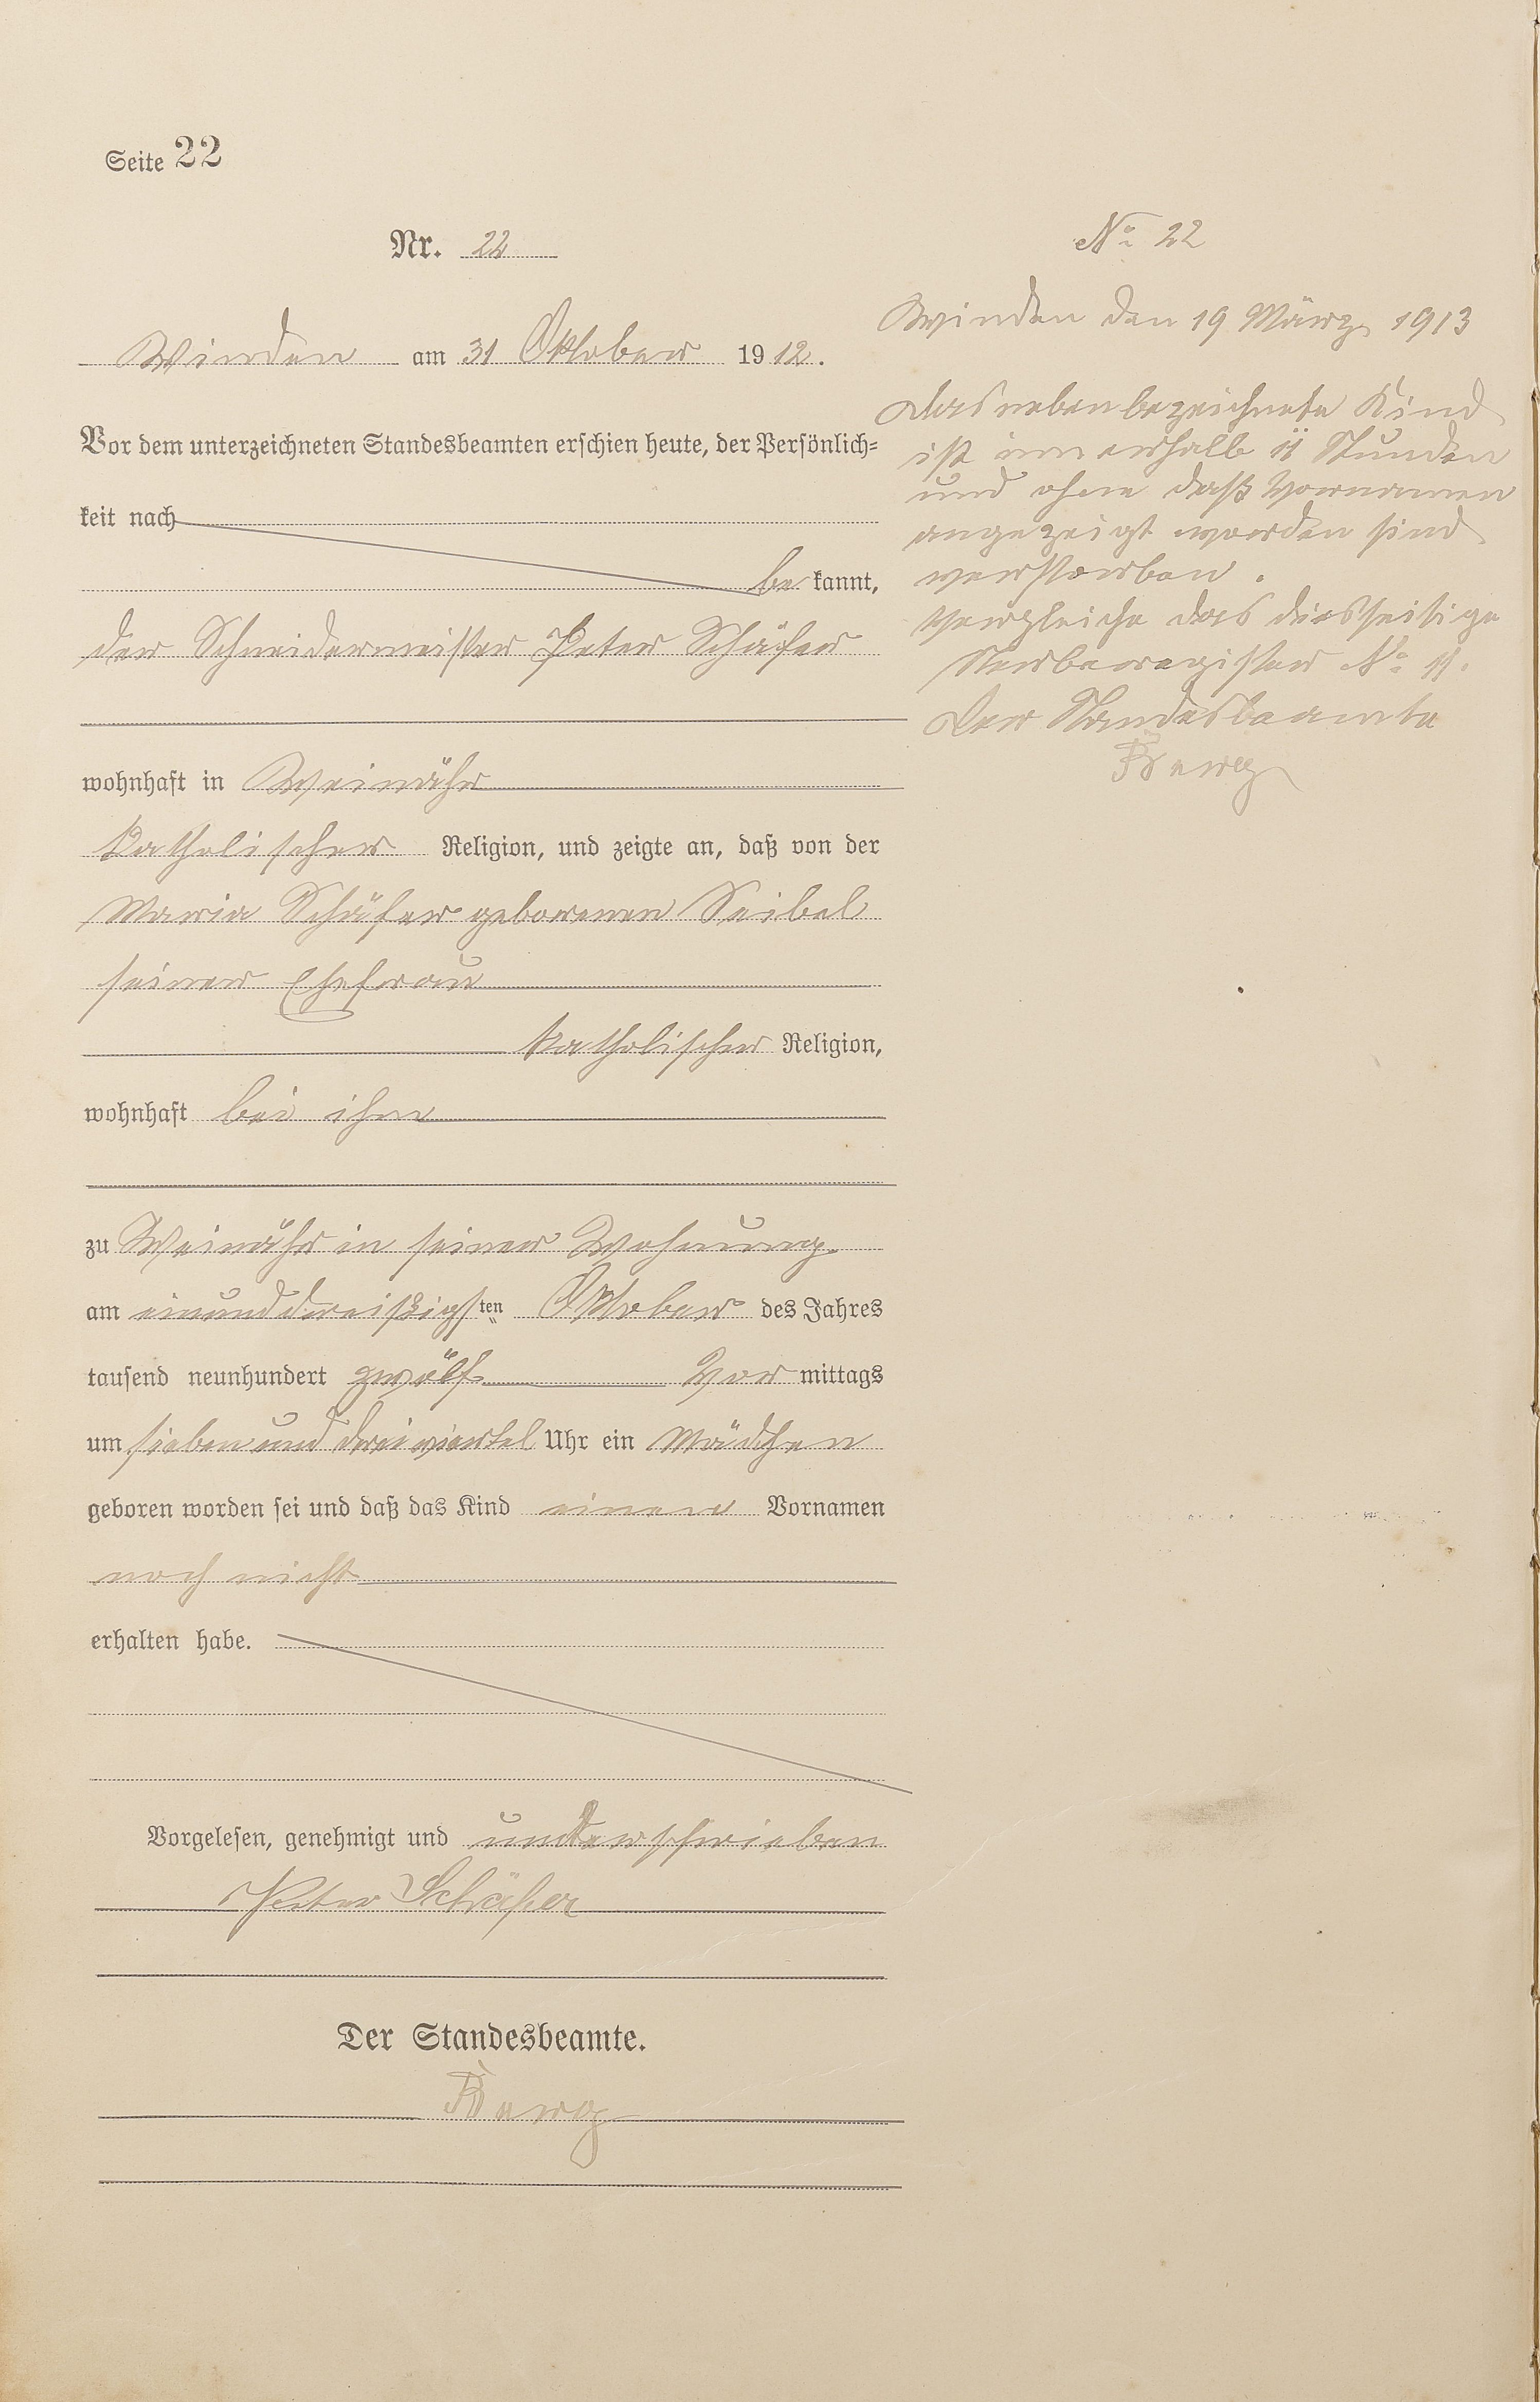 Seite 22
Nr. 22
Winden am 31 Oktober 1912.
Vor dem unterzeichneten Standesbeamten erschien heute, der Persönlich-
keit nach
be kannt,
der Schneidermeister Peter Schäfer
wohnhaft in Weinähr
katholischer Religion, und zeigte an, daß von der
Maria Schäfer geborenen Seibel
seiner Ehefrau
katholischer Religion,
wohnhaft bei ihm
zu Weinähr in seiner Wohnung
am einunddreißigsten Oktober des Jahres
tausend neunhundert zwölf Vor mittags
um sieben und dreiviertel Uhr ein Mädchen
geboren worden sei und daß das Kind einen Vornamen
noch nicht
erhalten habe.
Vorgelesen, genehmigt und unterschrieben
Peter Schäfer
Der Standesbeamte.
Berg
No 22
Winden den 19 März 1913
Das nebenbezeichnete Kind
ist innerhalb Stunden
und ohne daß Vornamen
angezeigt worden sind
verstorben.
Vergleiche das diesseitige
Sterberegister No 11.
Der Standesbeamte
Berg